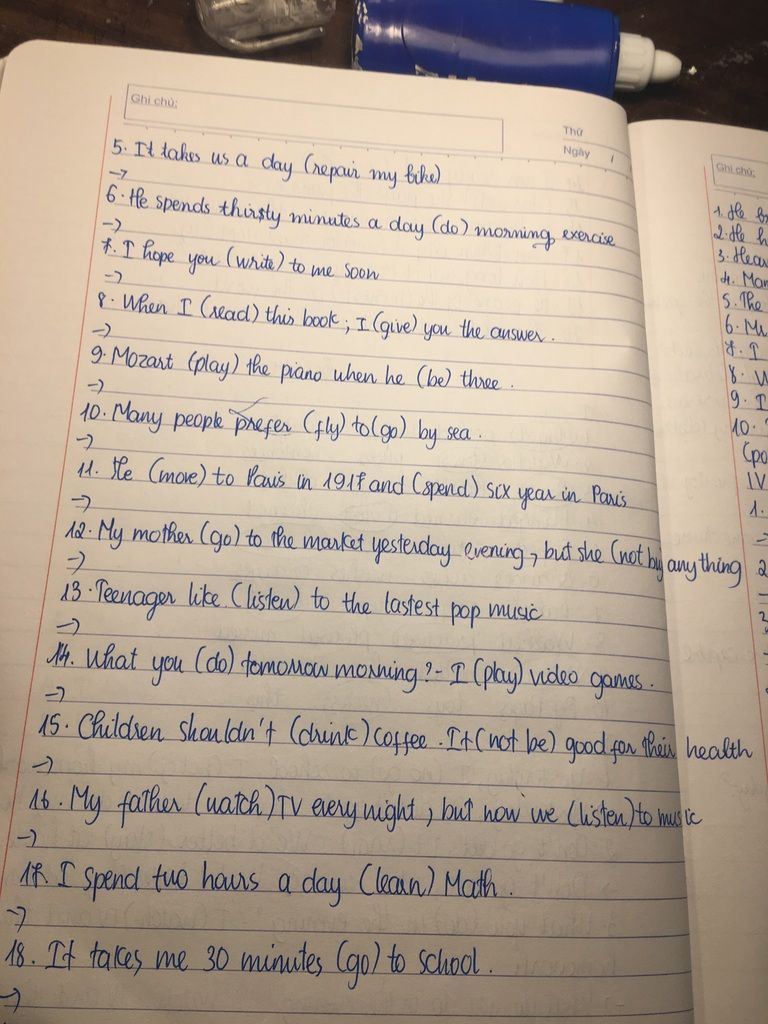 Ghi chú:
Thứ
Ngày /
5. It takes us a day (repair my bike)
→
6. He spends thirsty minutes a day (do) morning exercise
→
7. I hope you (write) to me soon
→
8. When I (read) this book; I (give) you the answer.
→
9. Mozart (play) the piano when he (be) three.
→
10. Many people prefer (fly) to (go) by sea.
→
11. He (move) to Paris in 1917 and (spend) six year in Paris
→
12. My mother (go) to the market yesterday evening, but she (not by anything
→
13. Teenager like (listen) to the lastest pop music
→
14. What you (do) tomorrow morning? - I (play) video games.
→
15. Children shouldn't (drink) coffee. It (not be) good for their health
→
16. My father (watch) TV every night, but now we (listen) to music
→
17. I spend two hours a day (learn) Math.
→
18. It takes me 30 minutes (go) to school.
→
Ghi chú:
1. He
2. He
3.
4.
5. The
6.
7. I
8.
9. I
10.
(po
IV
1.
→
2